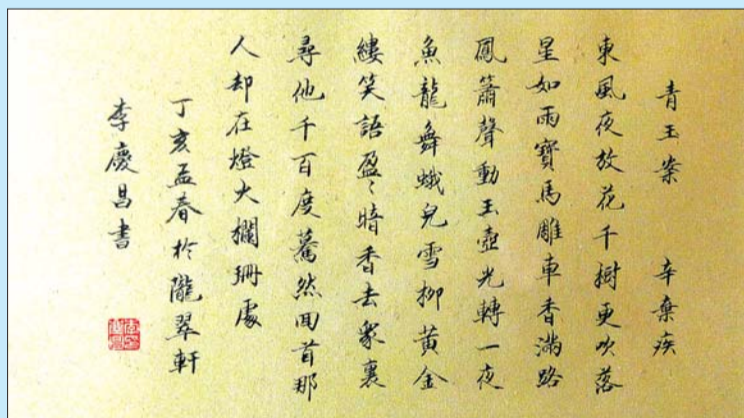 青玉案 辛棄疾
東風夜放花千樹更吹落
星如雨寶馬雕車香滿路
鳳簫聲動玉壺光轉一夜
魚龍舞蛾兒雪柳黃金
縷笑語盈〻暗香去衆裏
尋他千百度驀然回首那
人却在燈火欄珊處
丁亥孟春於隴翠軒
李慶昌書